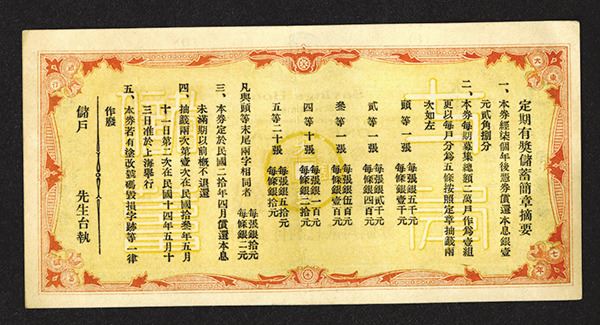 定期有獎儲蓄簡章摘要
一、本券經柒個年後憑券償還本息銀壹
元貳角捌分
二、本券每期募集總額二萬戶作爲壹組
更以每月分爲五條按照定章抽籤兩
次如左
頭等一張 每張銀五千元 每條銀壹千元
貳等一張 每張銀貳千元 每條銀四百元
叁等一張 每張銀伍百元 每條銀壹百元
四等十張 每張銀一百元 每條銀二拾元
五等二十張 每張銀五拾元 每條銀拾元
凡與頭等末尾兩字相同者 每張銀拾元 每條銀二元
三、本券定於民國二拾年四月償還本息
未滿期以前概不退還
四、抽籤兩次第壹次在民國拾叁年五月
十一日第二次在民國十四年五月十
三日准於上海舉行
五、本券若有塗改號碼毀損字跡等一律
作廢
儲戶 先生台執